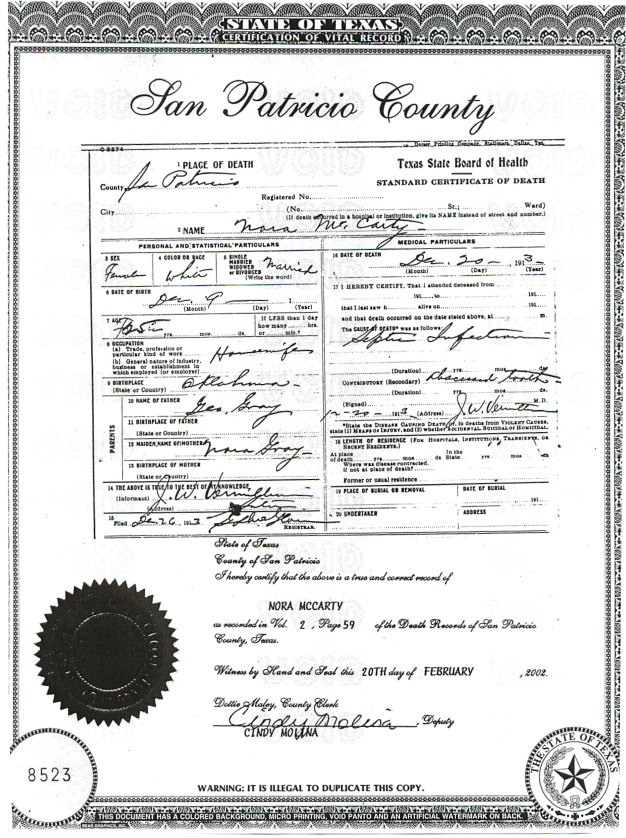 STATE OF TEXAS
CERTIFICATION OF VITAL RECORD
San Patricio County
C 3274
Dorsey Printing Company, Stationers, Dallas, Tex.
1 PLACE OF DEATH
Texas State Board of Health
County San Patricio
STANDARD CERTIFICATE OF DEATH
Registered No.
City (No. St.; Ward)
(If death occurred in a hospital or institution, give its NAME instead of street and number.)
2 NAME Nora McCarty
PERSONAL AND STATISTICAL PARTICULARS
MEDICAL PARTICULARS
3 SEX
Female
4 COLOR OR RACE
White
5 SINGLE
MARRIED
WIDOWED
or DIVORCED
(Write the word)
Married
16 DATE OF DEATH
Dec. 20 1913
(Month) (Day) (Year)
6 DATE OF BIRTH
Dec 9 1
(Month) (Day) (Year)
17 I HEREBY CERTIFY, That I attended deceased from
191 to 191
that I last saw h alive on 191
and that death occurred on the date stated above, at m.
7 AGE
yrs. mos. ds.
If LESS than 1 day
how many hrs.
or min.?
The CAUSE OF DEATH* was as follows:
Septic Infection
8 OCCUPATION
(a) Trade, profession or
particular kind of work
(b) General nature of industry,
business or establishment in
which employed (or employer)
Housewife
(Duration) yrs. mos. ds.
CONTRIBUTORY (Secondary) tooth
(Duration) yrs. mos. ds.
9 BIRTHPLACE
(State or Country)
Oklahoma
(Signed) M.D.
12-20- 1913 (Address)
10 NAME OF FATHER
Geo, Gray
*State the DISEASE CAUSING DEATH, or, in deaths from VIOLENT CAUSES,
state (1) MEANS OF INJURY, and (2) whether ACCIDENTAL, SUICIDAL OR HOMICIDAL.
PARENTS
11 BIRTHPLACE OF FATHER
(State or Country)
12 MAIDEN NAME OF MOTHER
Nora Gray
13 BIRTHPLACE OF MOTHER
(State or Country)
18 LENGTH OF RESIDENCE (FOR HOSPITALS, INSTITUTIONS, TRANSIENTS, OR
RECENT RESIDENTS.)
At place
of death yrs. mos. ds.
In the
State yrs. mos. ds.
Where was disease contracted,
if not at place of death?
Former or usual residence
14 THE ABOVE IS TRUE TO THE BEST OF MY KNOWLEDGE
(Informant) J. W.
(Address)
19 PLACE OF BURIAL OR REMOVAL
DATE OF BURIAL
191
15
Filed Dec 26, 1913
REGISTRAR.
20 UNDERTAKER
ADDRESS
State of Texas
County of San Patricio
I hereby certify that the above is a true and correct record of
NORA MCCARTY
as recorded in Vol. 2, Page 59 of the Death Records of San Patricio
County, Texas.
Witness by Hand and Seal this 20TH day of FEBRUARY , 2002.
Dottie Maley, County Clerk
Cindy Molina , Deputy
CINDY MOLINA
8523
THE STATE OF TEXAS
WARNING: IT IS ILLEGAL TO DUPLICATE THIS COPY.
THIS DOCUMENT HAS A COLORED BACKGROUND, MICRO PRINTING, VOID PANTO AND AN ARTIFICIAL WATERMARK ON BACK.